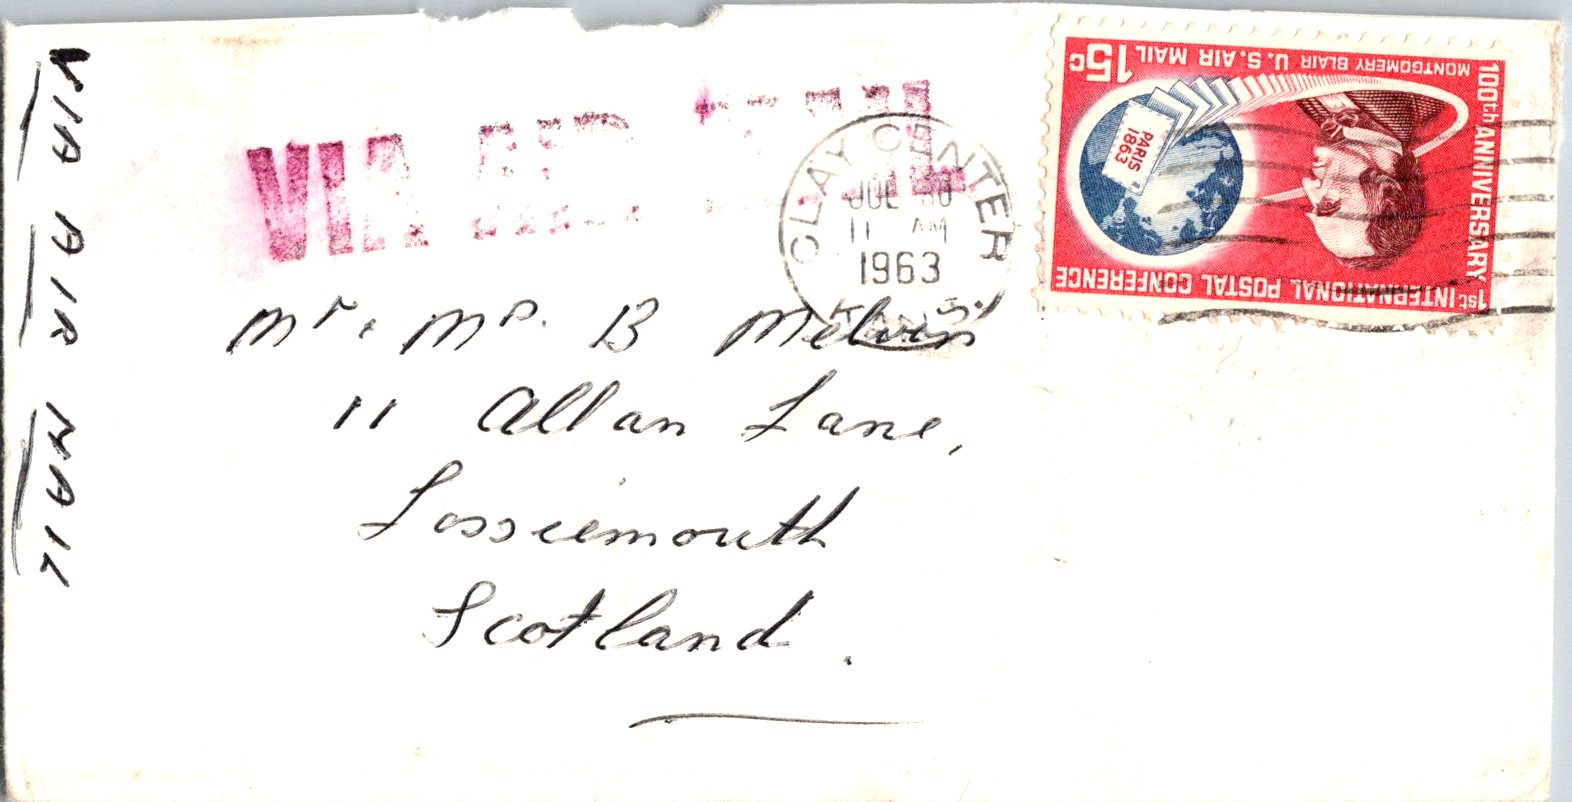 VIA AIR MAIL
VIA AIR MAIL
CLAY CENTER
JUL 30
11 AM
1963
KANS.
15c
MONTGOMERY BLAIR U.S. AIR MAIL
100th ANNIVERSARY
1st INTERNATIONAL POSTAL CONFERENCE
PARIS
1863
Mr & Mrs. B Melvin
11 Allan Lane,
Lossiemouth
Scotland.